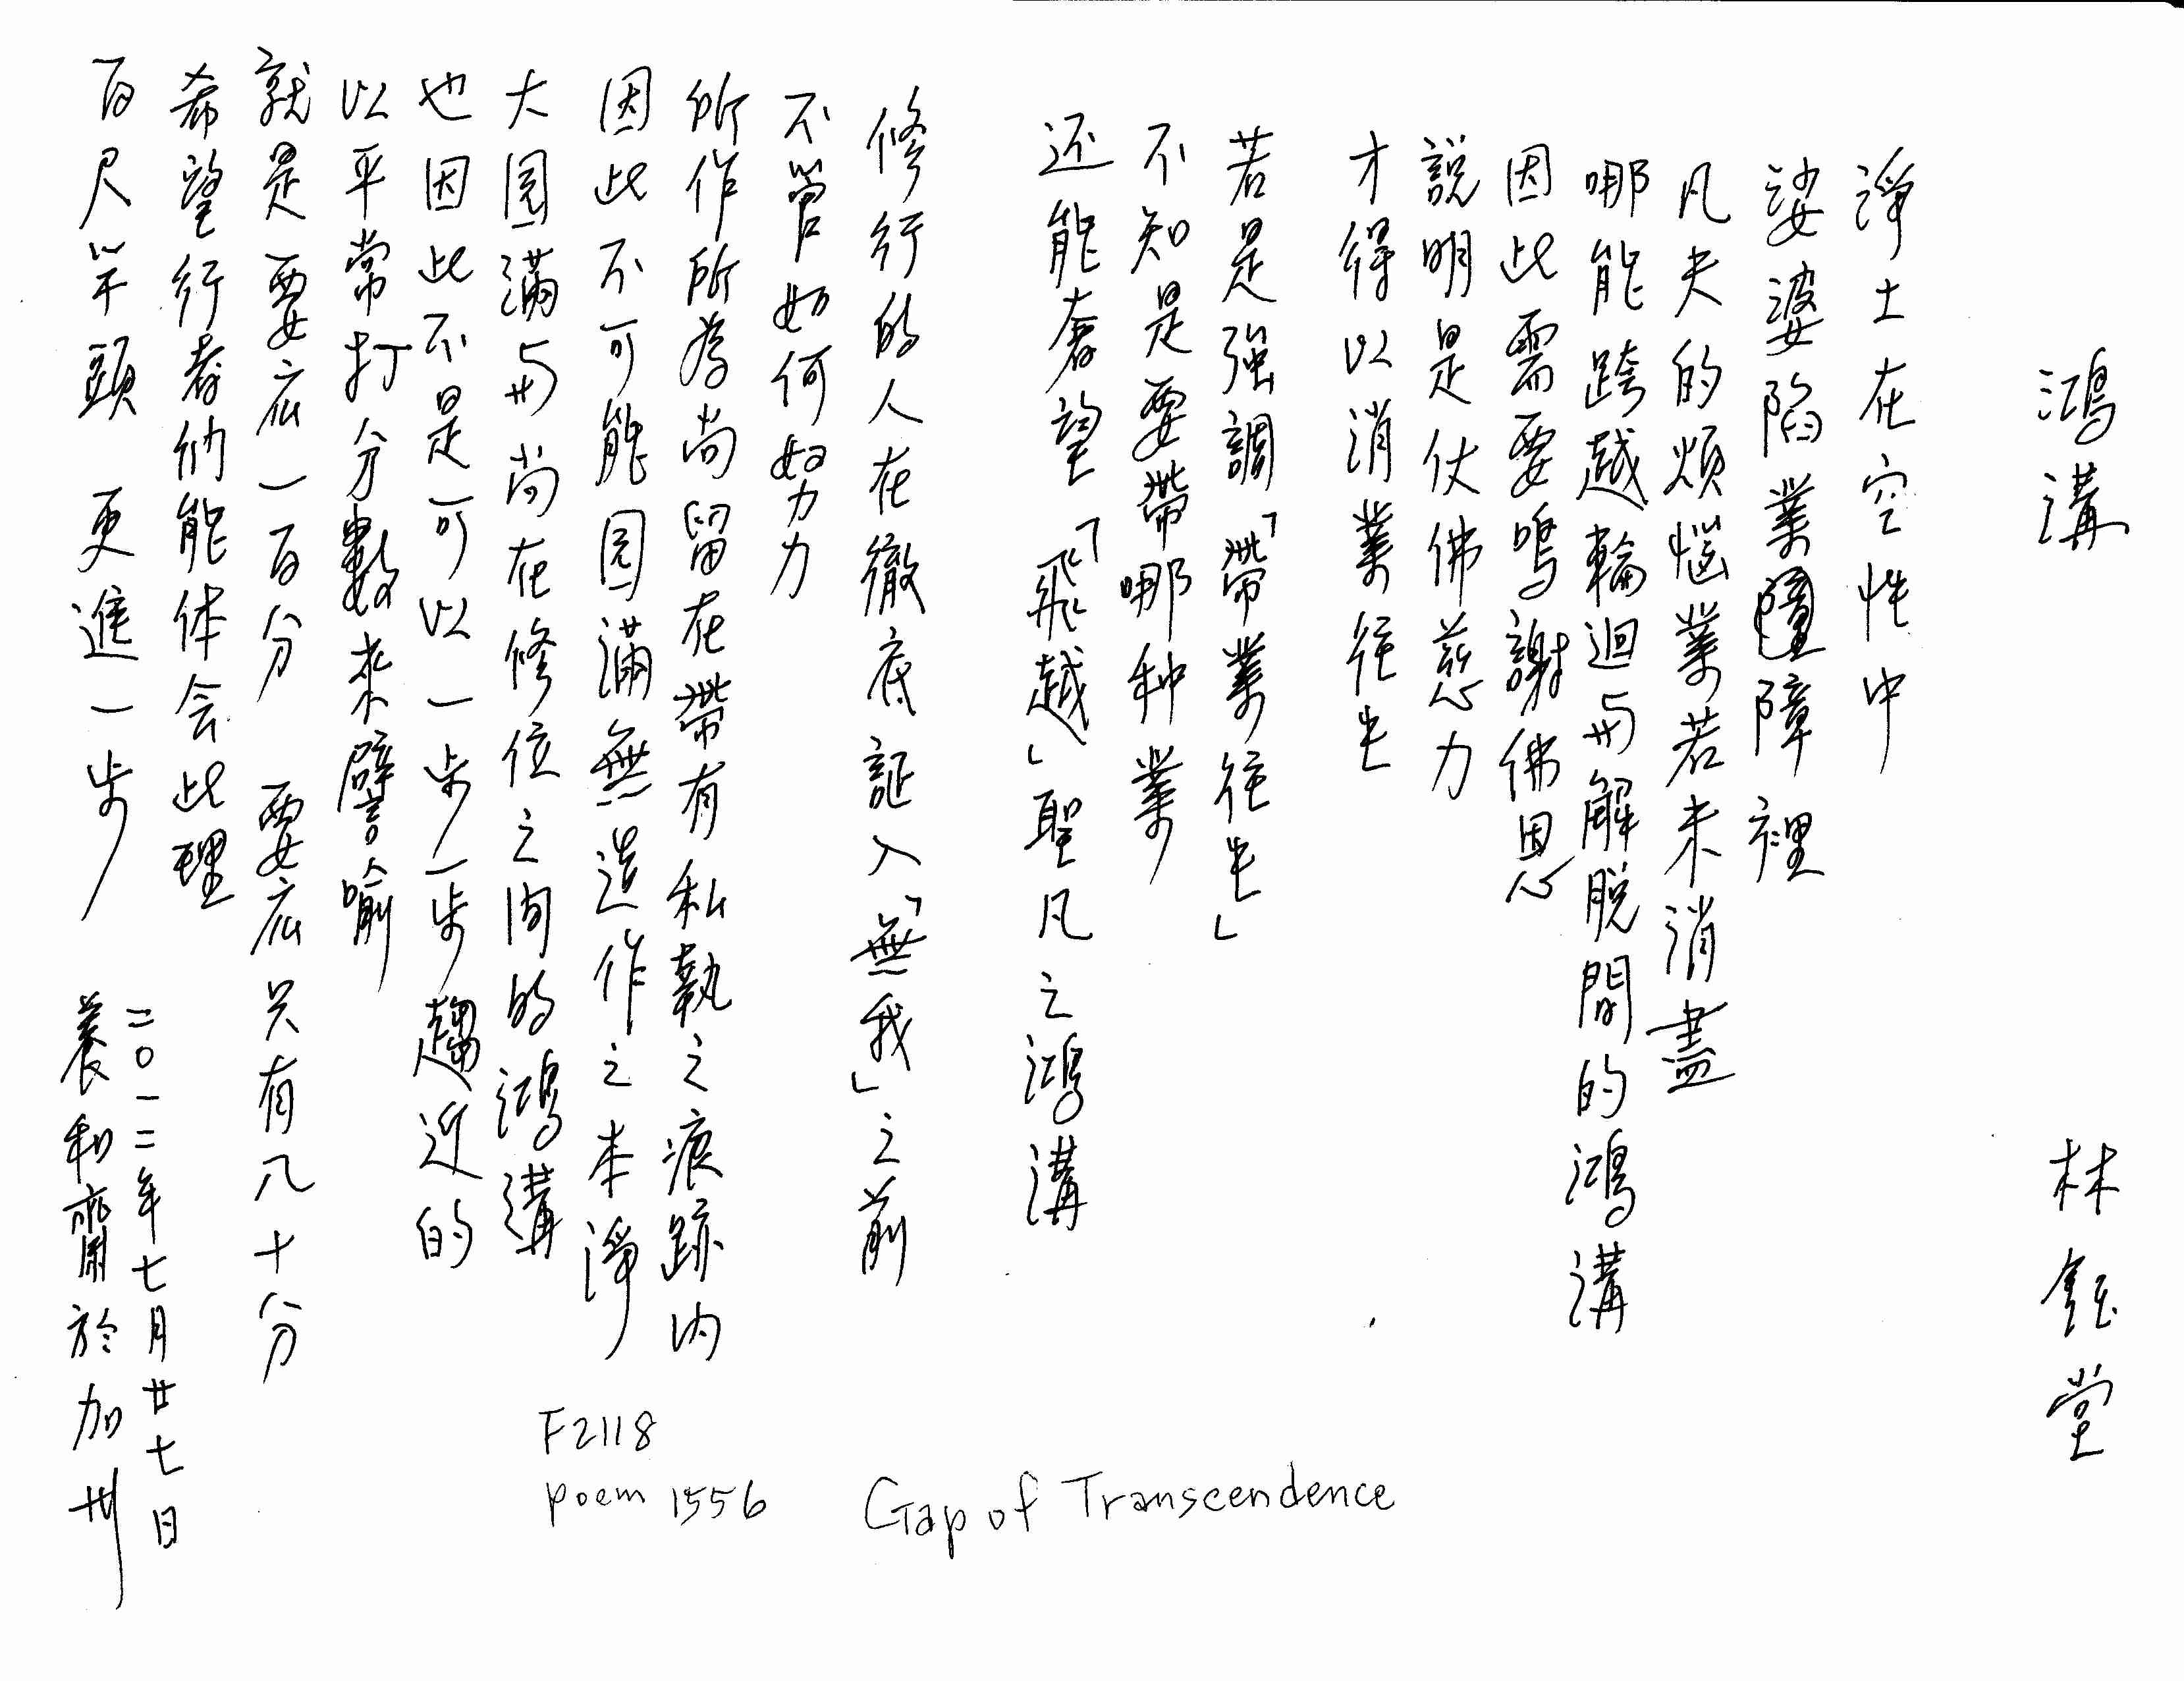 鴻溝　　林鈺堂
淨土在空性中
娑婆陷業障裡
凡夫的煩惱業若未消盡
哪能跨越輪迴与解脫間的鴻溝
因此需要鳴謝佛恩
說明是仗佛慈力
才得以消業往生
若是強調「帶業往生」
不知是要帶哪种業
还能奢望「飛越」聖凡之鴻溝
修行的人在徹底証入「無我」之前
不管如何努力
所作所為尚留在帶有私執之痕跡内
因此不可能圆滿無造作之本淨
大圆滿与尚在修位之間的鴻溝
也因此不是可以一步一步趨近的
以平常打分數來譬喻
就是要底一百分　要底只有八十分
希望行者們能体会此理
百尺竿頭　更進一步
二〇一二年七月廿七日
養和齋於加州
F2118
poem 1556
Gap of Transcendence